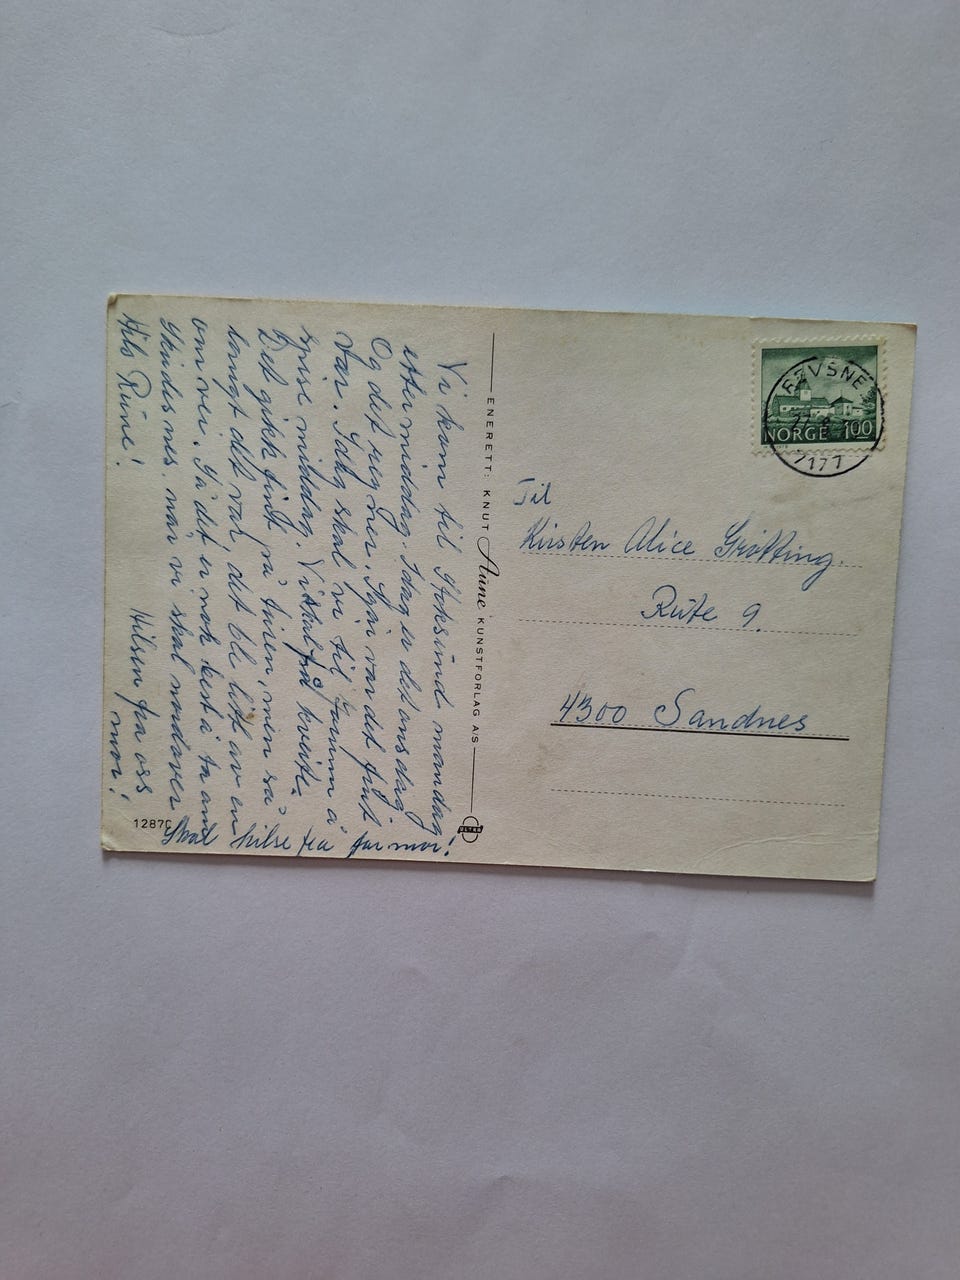 Vi kom til Stoksund mandag
ettermiddag. Idag er det onsdag
Og det regner. Igår var det fint
vær. Idag skal vi til famnm å
spise middag. Vi skal få kveite.
Det gikk fint på turen, men så
langt det var, det ble litt av en
omvei. Så det er nok best å ta om
når vi skal nordover
Hils Rune!
Hilsen fra oss
mor!
Skal hilse fra farmor!
1287
ENERETT: KNUT Aune KUNSTFORLAG A/S
ULTRA
NORGE 100
REVSNE
77
Til
Kirsten Alice Grøtting.
Rute 9.
4300 Sandnes